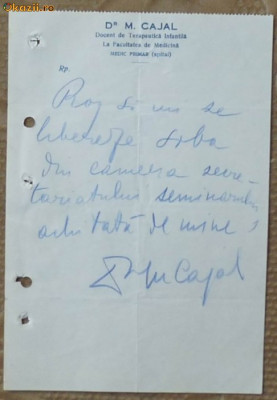 Dr M. CAJAL
Docent de Terapeutică Infantilă
La Facultatea de Medicină
MEDIC PRIMAR (spital)
Rp.
Rog să mi se
libereze soba
din camera secre-
tariatului seminarului
achitată de mine
Dr M Cajal